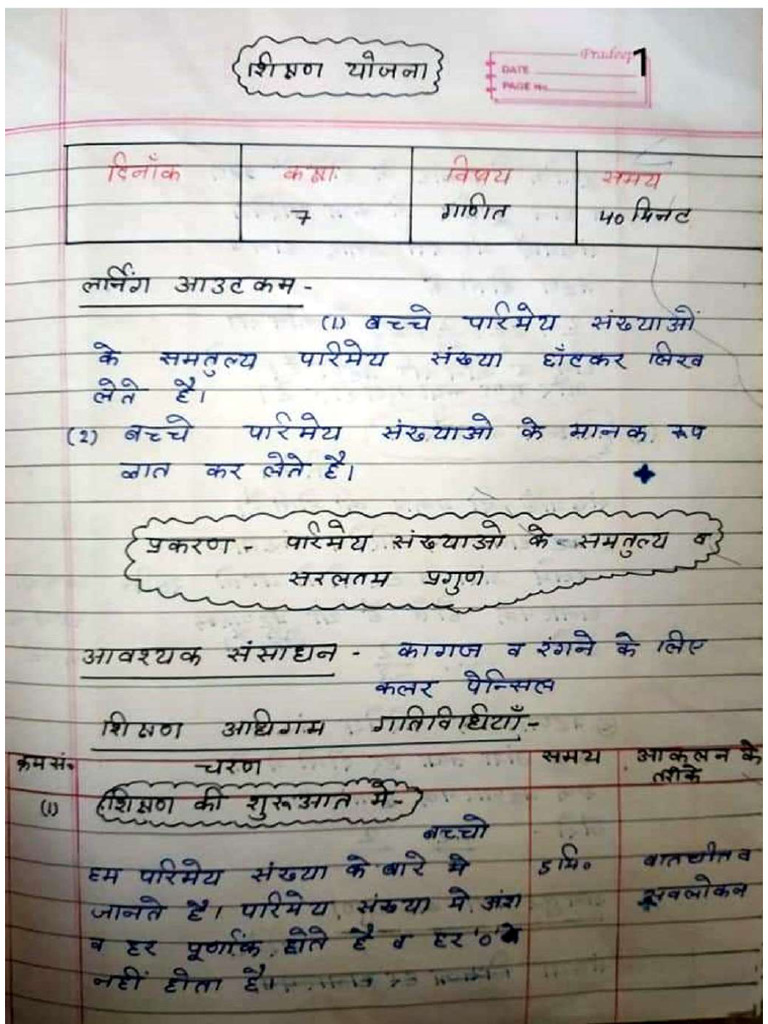 शिक्षण योजना
Pradeep 1
DATE
PAGE No.
दिनाँक कक्षा विषय समय
7 गणित 40 मिनट
लर्निंग आउटकम -
(1) बच्चे परिमेय संख्याओं
के समतुल्य परिमेय संख्या छाँटकर लिख
लेते है।
(2) बच्चे परिमेय संख्याओ के मानक रूप
ज्ञात कर लेते है।
प्रकरण - परिमेय संख्याओ के समतुल्य व
सरलतम प्रगुण
आवश्यक संसाधन - कागज व रंगने के लिए
कलर पेन्सिल
शिक्षण अधिगम गतिविधियाँ -
क्रम सं० चरण समय आकलन के
तरीके
(1) शिक्षण की शुरूआत मे -
बच्चो
हम परिमेय संख्या के बारे मे 5 मि० बातचीत व
जानते है। परिमेय संख्या मे अंश अवलोकन
व हर पूर्णांक होते है व हर '0'
नहीं होता है।